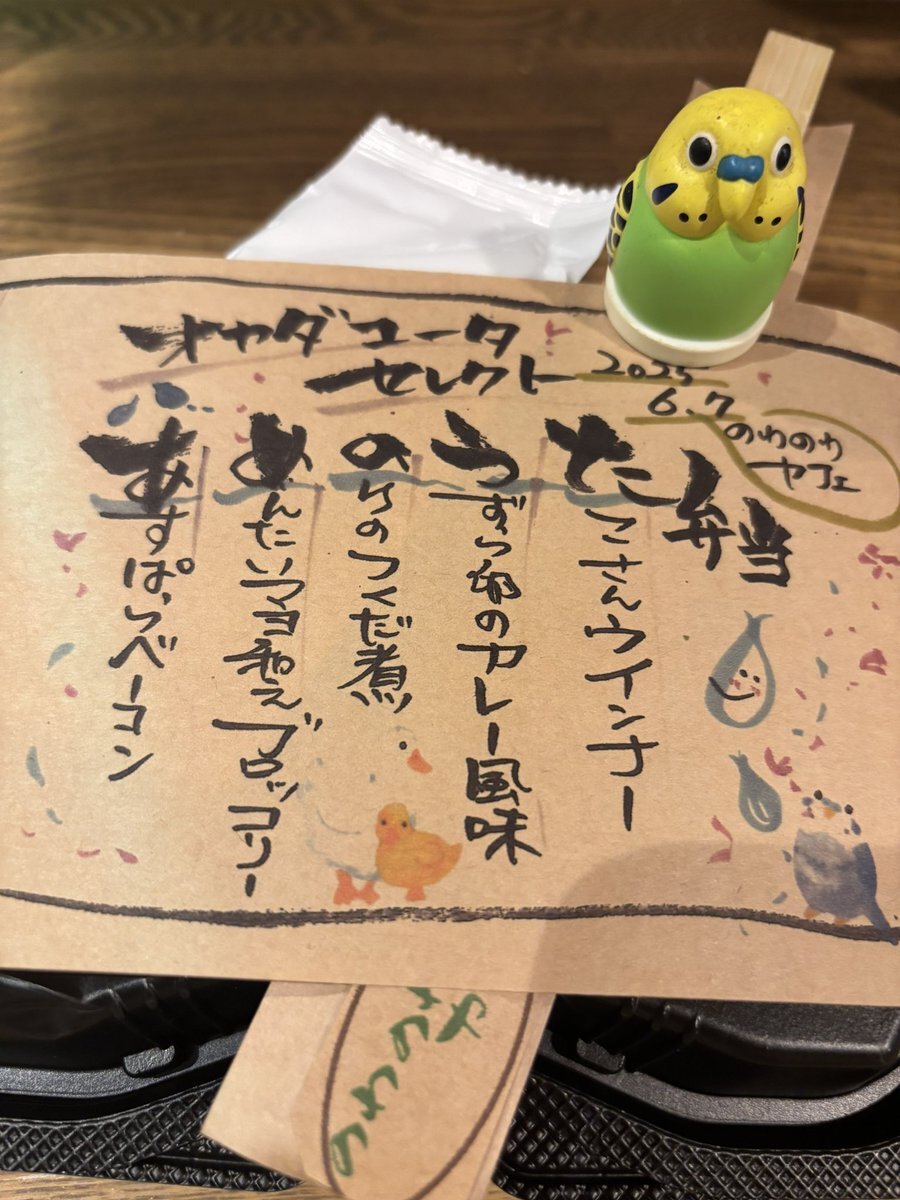 オカダユータ
セレクト
2025
6.7
のわのわ
カフェ
弁当
たこさんウインナー
うずら卵のカレー風味
のりのつくだ煮
めんたいマヨ和えブロッコリー
あすぱらベーコン
のわのわや